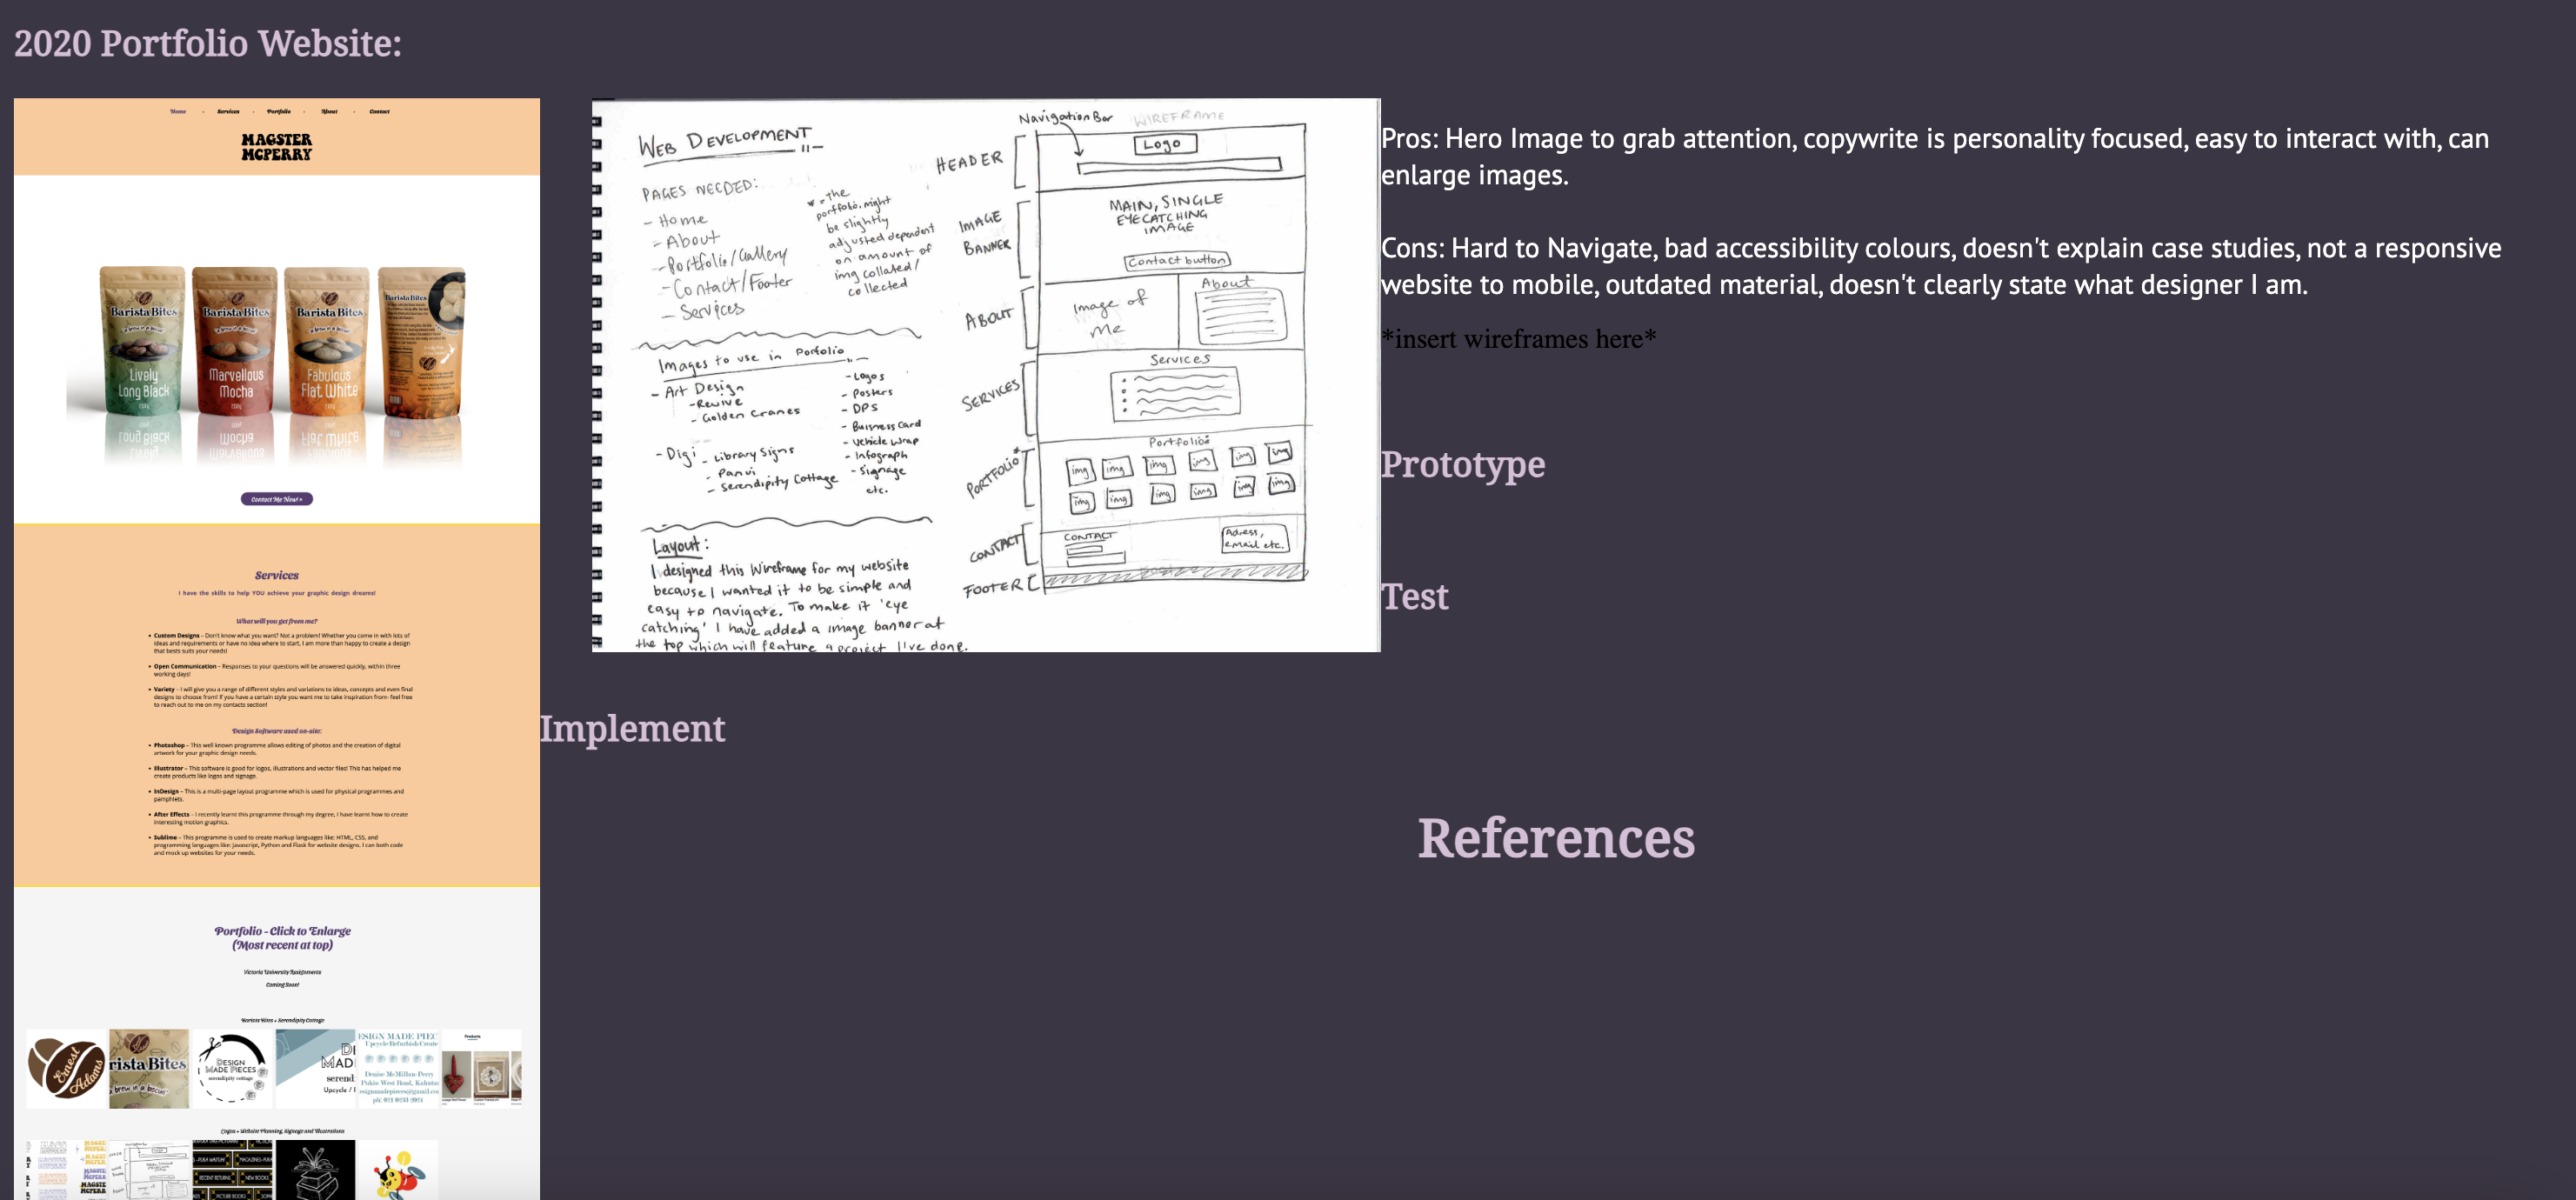 2020 Portfolio Website:
Home · Services · Portfolio · About · Contact
MAGSTER
MCPERRY
Barista Bites
"a brew in a biscuit"
Lively
Long Black
250g
Barista Bites
"a brew in a biscuit"
Marvellous
Mocha
250g
Barista Bites
"a brew in a biscuit"
Fabulous
Flat White
250g
Barista Bites
Contact Me Now! »
Services
I have the skills to help YOU achieve your graphic design dreams!
What will you get from me?
• Custom Designs – Don't know what you want? Not a problem! Whether you come in with lots of
ideas and requirements or have no idea where to start, I am more than happy to create a design
that bests suits your needs!
• Open Communication – Responses to your questions will be answered quickly, within three
working days!
• Variety - I will give you a range of different styles and variations to ideas, concepts and even final
designs to choose from! If you have a certain style you want me to take inspiration from- feel free
to reach out to me on my contacts section!
Design Software used on-site:
• Photoshop – This well known programme allows editing of photos and the creation of digital
artwork for your graphic design needs.
• Illustrator – This software is good for logos, illustrations and vector files! This has helped me
create products like logos and signage.
• InDesign – This is a multi-page layout programme which is used for physical programmes and
pamphlets.
• After Effects – I recently learnt this programme through my degree, I have learnt how to create
interesting motion graphics.
• Sublime – This programme is used to create markup languages like: HTML, CSS, and
programming languages like: Javascript, Python and Flask for website designs. I can both code
and mock up websites for your needs.
Portfolio - Click to Enlarge
(Most recent at top)
Victoria University Assignments
Coming Soon!
Barista Bites + Serendipity Cottage
Ernest
Adams
rista Bites
brew in a biscuit
DESIGN
MADE PIECES
serendipity cottage
DE
MAD
serend
Upcycle / I
ESIGN MADE PIEC
Upcycle Refurbish Create
Denise McMillan-Perry
Pukio West Road, Kahutar
esignmadepieces@gmail.co
ph: 021 0233 2924
Products
Logos + Website Planning, Signage and Illustrations
RECENT RETURNS
NEW BOOKS
PICTURE BOOKS
WEB DEVELOPMENT
PAGES NEEDED:
- Home
- About
- Portfolio/Gallery
- Contact/Footer
- Services
* = the
portfolio might
be slightly
adjusted dependent
on amount of
img collated/
collected
Images to use in Porfolio
- Art Design
- Revive
- Golden Cranes
- Digi
- Library Signs
- Panui
- Serendipity Cottage
- Logos
- Posters
- DPS
- Buisness Card
- Vehicle Wrap
- Infograph
- Signage
etc.
Layout:
I designed this Wireframe for my website
because I wanted it to be simple and
easy to navigate. To make it 'eye
catching' I have added a image banner at
the top which will feature a project I've done.
Navigation Bar
WIREFRAME
HEADER
Logo
IMAGE
BANNER
MAIN, SINGLE
EYECATCHING
IMAGE
Contact button
ABOUT
Image of
Me
About
SERVICES
Services
PORTFOLIO*
Portfolio
img img img img img img
img img img img img img
CONTACT
CONTACT
Adress,
email etc.
FOOTER
Pros: Hero Image to grab attention, copywrite is personality focused, easy to interact with, can
enlarge images.
Cons: Hard to Navigate, bad accessibility colours, doesn't explain case studies, not a responsive
website to mobile, outdated material, doesn't clearly state what designer I am.
*insert wireframes here*
Prototype
Test
Implement
References